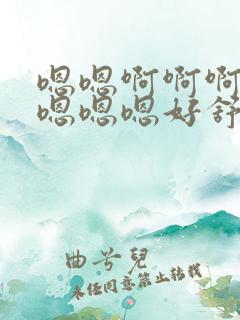 嗯嗯啊啊啊
嗯嗯嗯好舒
曲兮兒
未经同意禁止转载